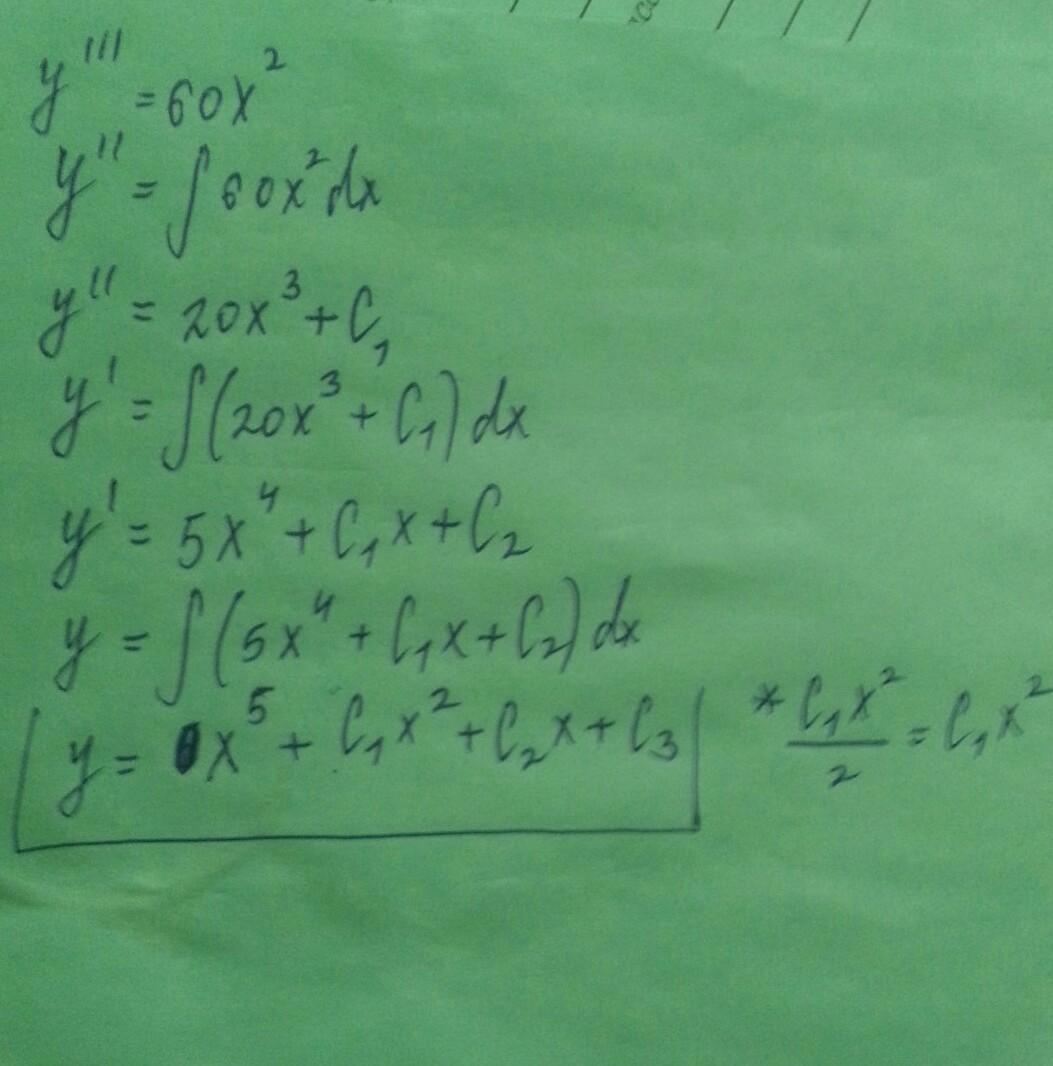 y''' = 60x²
y'' = ∫60x²dx
y'' = 20x³ + C₁
y' = ∫(20x³ + C₁)dx
y' = 5x⁴ + C₁x + C₂
y = ∫(5x⁴ + C₁x + C₂)dx
y = x⁵ + C₁x² + C₂x + C₃
* C₁x²/2 = C₁x²